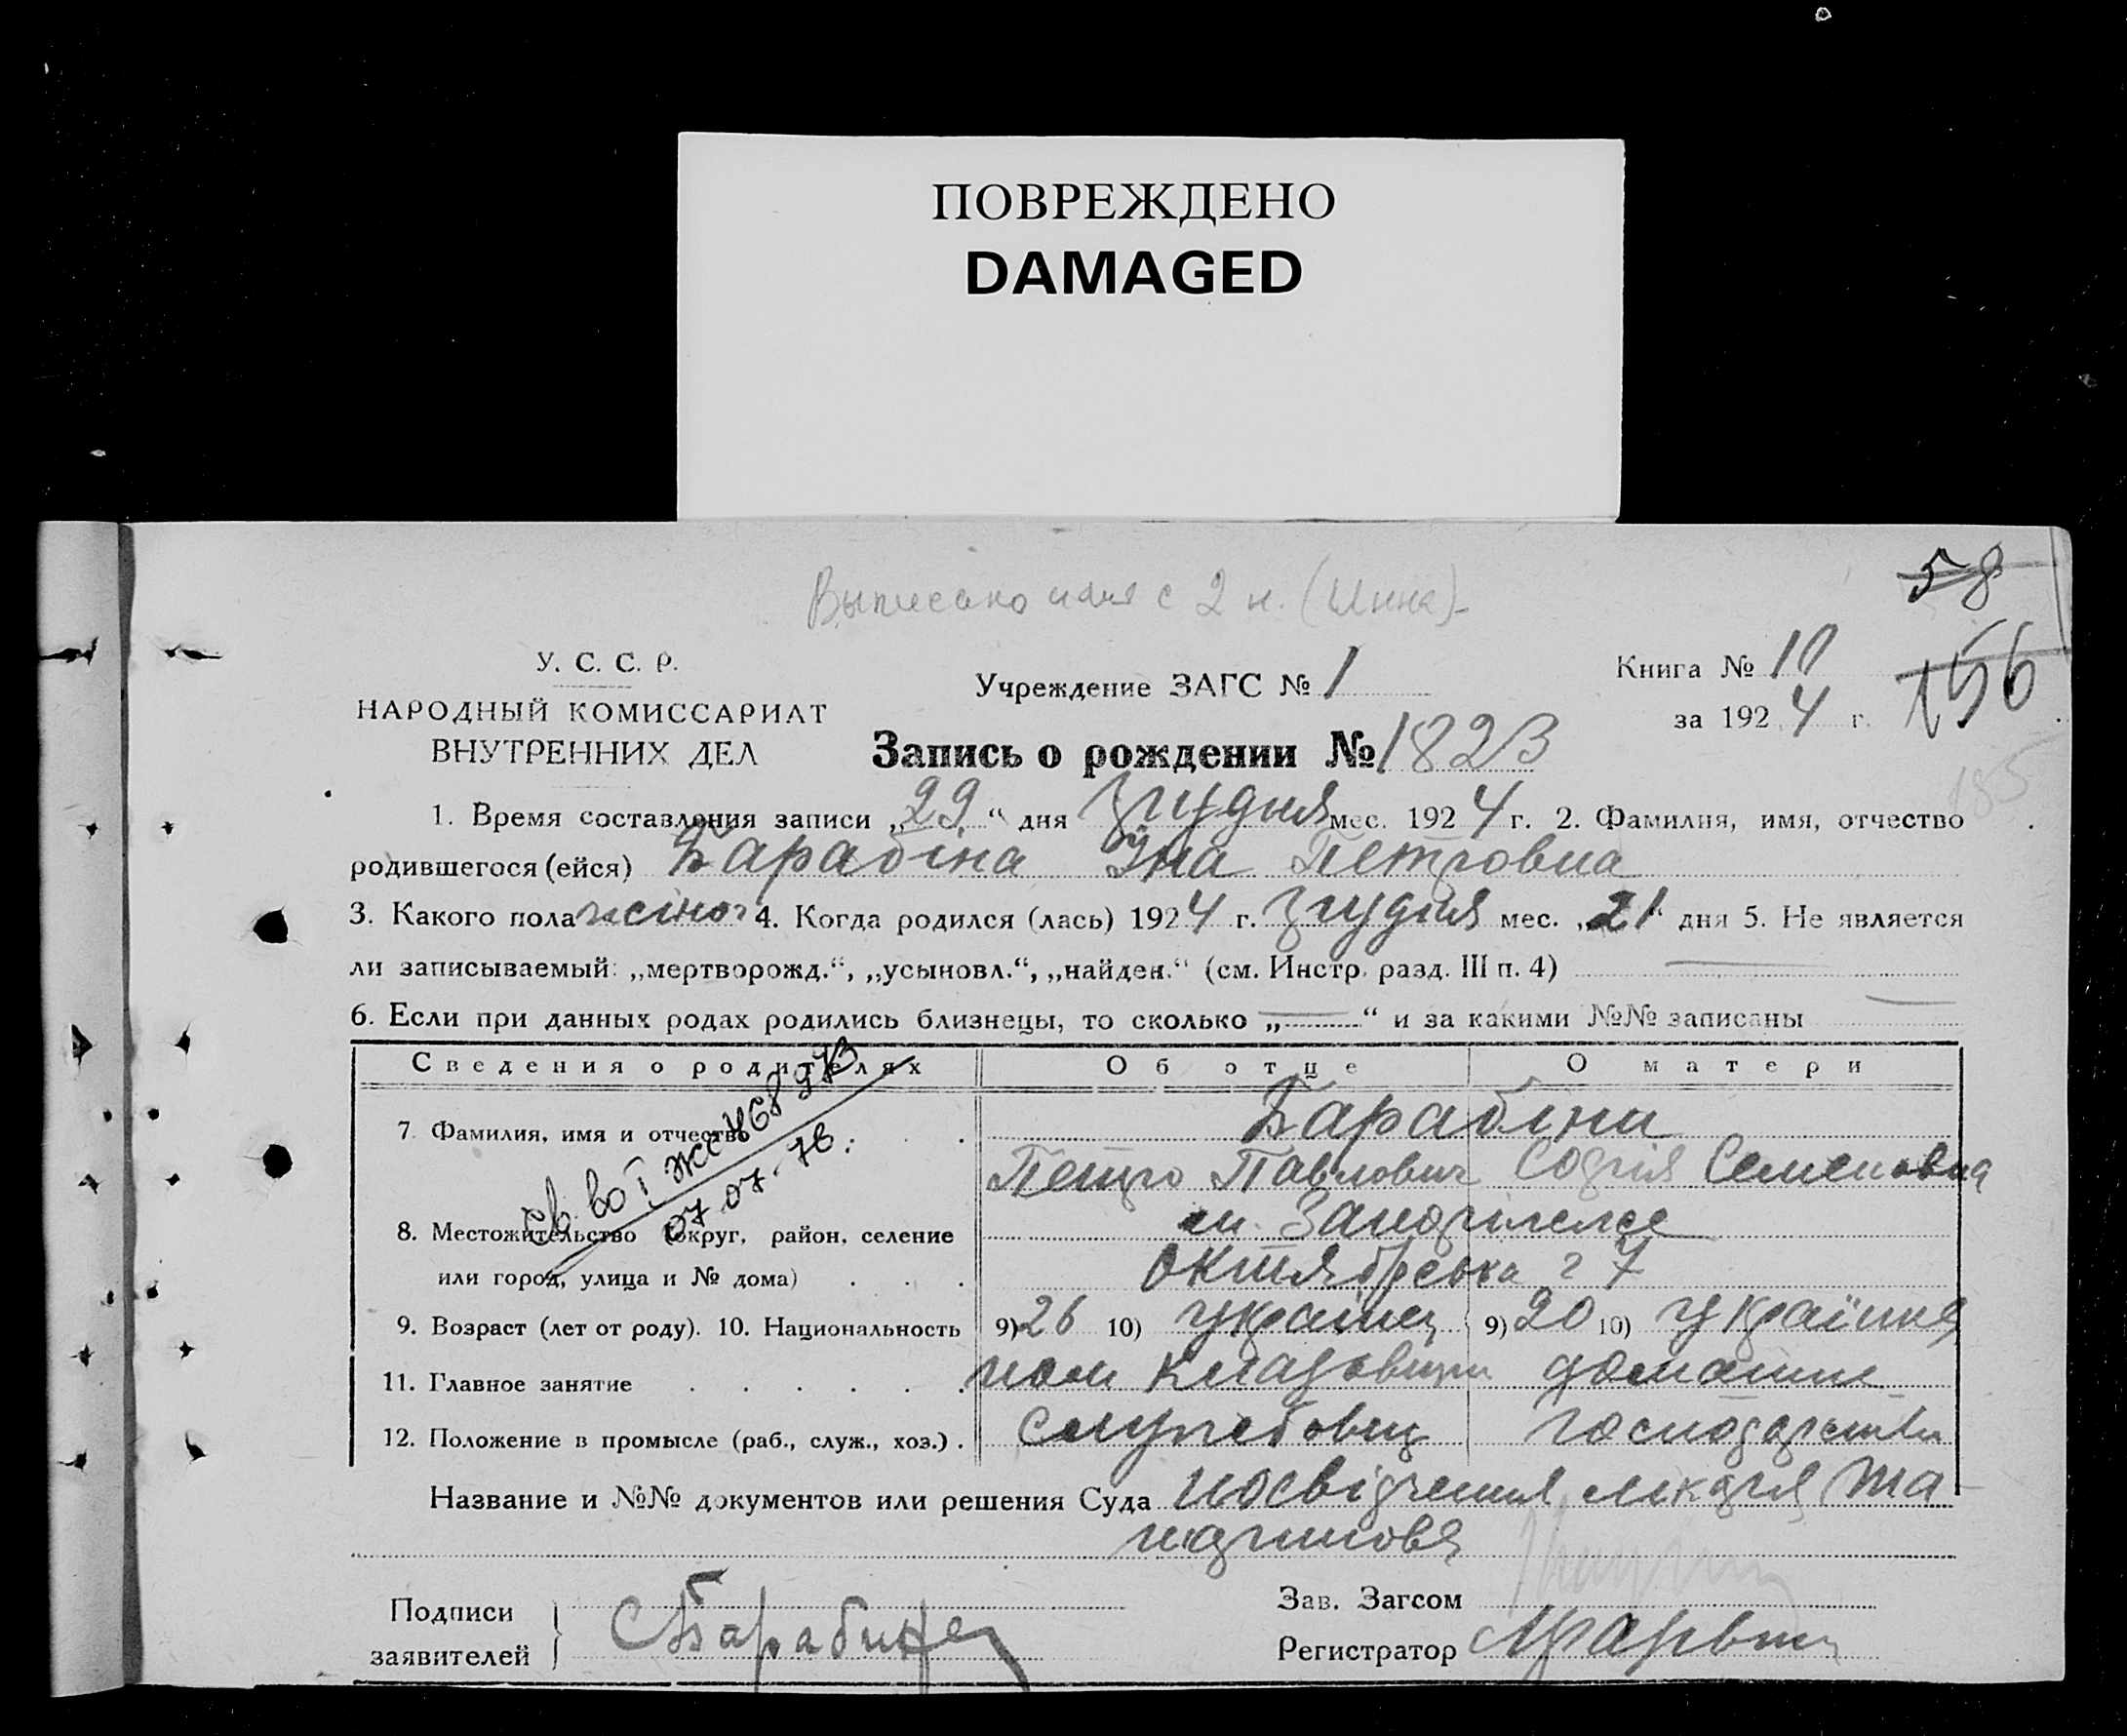 ПОВРЕЖДЕНО
DAMAGED
58
Выписано имя с 2 н. (Инна)
У. С. С. Р.
НАРОДНЫЙ КОМИССАРИАТ
ВНУТРЕННИХ ДЕЛ
Учреждение ЗАГС № 1
Книга № 10
за 1924 г.
156
185
Запись о рождении № 1823
1. Время составления записи „29“ дня грудня мес. 1924 г. 2. Фамилия, имя, отчество
родившегося (ейся) Барабіна Іна Петровна
3. Какого пола жіноч 4. Когда родился (лась) 1924 г. грудня мес. „21“ дня 5. Не является
ли записываемый: „мертворожд.“, „усыновл.“, „найден.“ (см. Инстр. разд. III п. 4)
6. Если при данных родах родились близнецы, то сколько „—“ и за какими №№ записаны —
Сведения о родителях Об отце О матери
7. Фамилия, имя и отчество Барабіни
Петро Павлович Софія Семеновна
8. Местожительство (округ, район, селение м. Запоріжжє
или город, улица и № дома) Октябрська 7
св. во I ЖС 468973
07.07.78.
9. Возраст (лет от роду). 10. Национальность 9) 26 10) українец 9) 20 10) українка
11. Главное занятие пом кладовщик домашнє
12. Положение в промысле (раб., служ., хоз.) службовец господарство
Название и №№ документов или решения Суда посвідчення лікаря та
Подписи
заявителей
СБарабина
Зав. Загсом
Регистратор